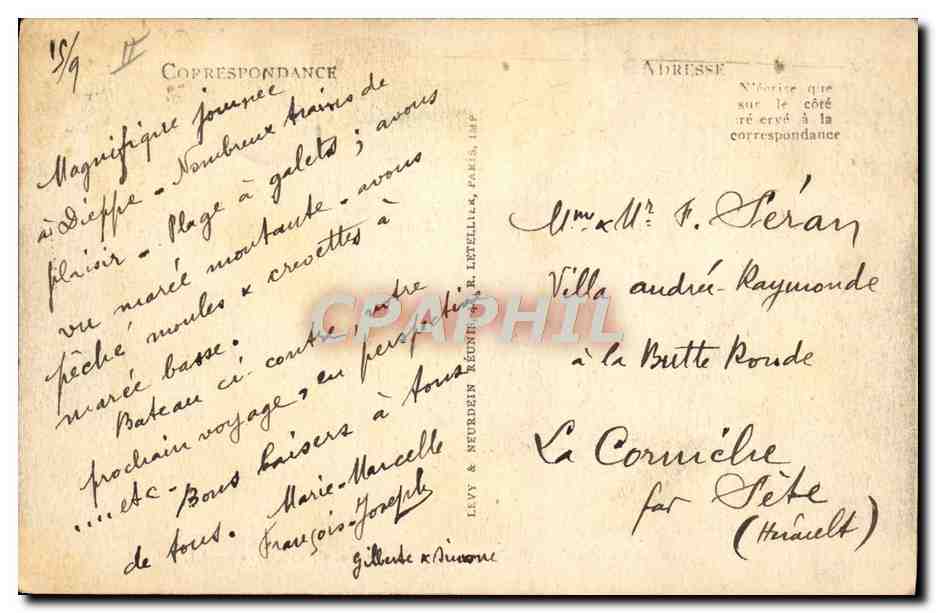 15/9
II
CORRESPONDANCE
Magnifique journée
à Dieppe - Nombreux trains de
plaisir - Plage à galets ; avons
vu marée montante - avons
pêché moules & crevettes à
marée basse.
Bateau ci-contre, notre
prochain voyage, en perspective
....etc - Bons baisers à tous
de tous. Marie-Marcelle
François-Joseph
Gilberte & Simone
LEVY & NEURDEIN RÉUNIS, R. LETELLIER, PARIS, IMP.
ADRESSE
N'écrire que
sur le côté
réservé à la
correspondance
Mme & Mr F. Séran
Villa andrée-Raymonde
à la Butte Ronde
La Corniche
par Sète
(Hérault)
CPAPHIL